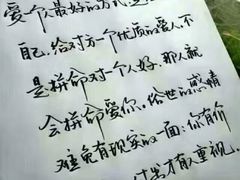 爱个人最好的方式,是
自己,给对方一个优质的爱人,不
是拼命对一个人好,那人就
会拼命爱你。俗世的感情
难免有现实的一面:你有价
才有人重视。